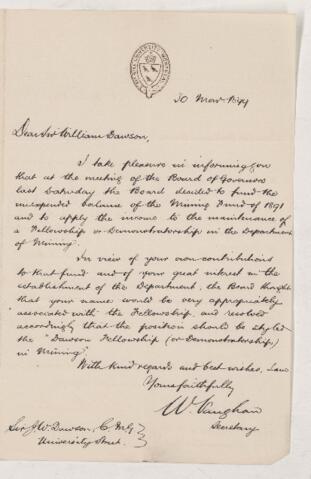 30 Nov 1894
Dear Sir William Dawson,
I take pleasure in informing you
that at the meeting of the Board of Governors
last Saturday the Board decided to fund the
unexpended balance of the Mining Fund of 1891
and to apply the income to the maintenance of
a Fellowship or Demonstratorship in the Department
of Mining.
In view of your own contributions
to that fund and of your great interest in the
establishment of the Department, the Board thought
that your name would be very appropriately
associated with the Fellowship, and resolved
accordingly that the position should be styled
the "Dawson Fellowship (or Demonstratorship)
in Mining".
With kind regards and best wishes, I am
Yours faithfully
W. Vaughan
Secretary
Sir J. W. Dawson, C.M.G.
University Street.